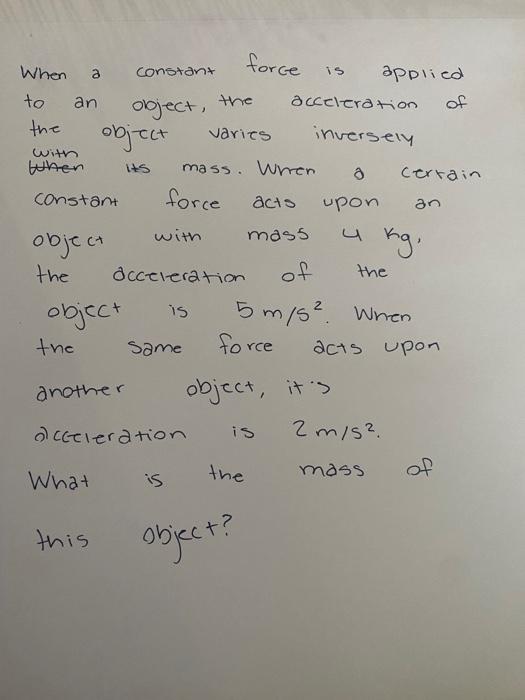 When a constant force is applied
to an object, the acceleration of
the object varies inversely
with
When its mass. When a certain
constant force acts upon an
object with mass 4 kg,
the acceleration of the
object is 5 m/s². When
the same force acts upon
another object, it's
acceleration is 2 m/s².
What is the mass of
this object?